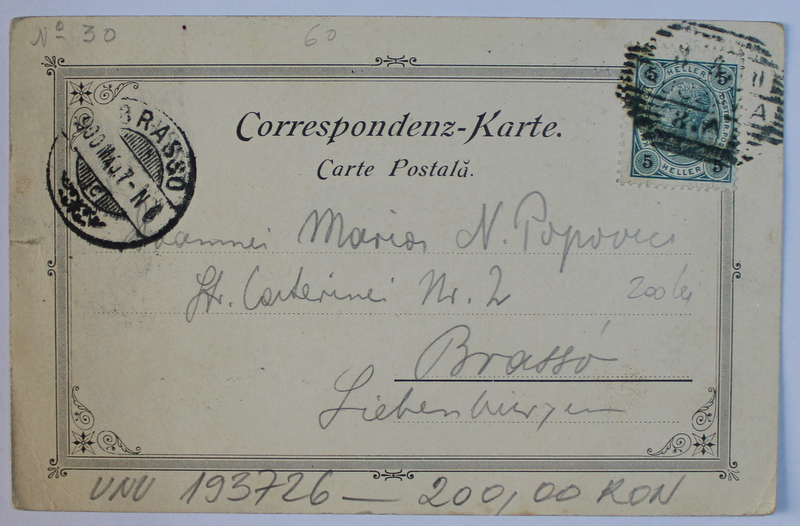 No 30
60
5 HELLER 5
5 HELLER 5
BRASSÓ
900 MÁJ. 7-N
Correspondenz-Karte.
Carte Postală.
Maria N. Popovici
Str. Caterinei Nr. 2
200 lei
Brassó
Siebenbürgen
UNU 193726 — 200,00 RON